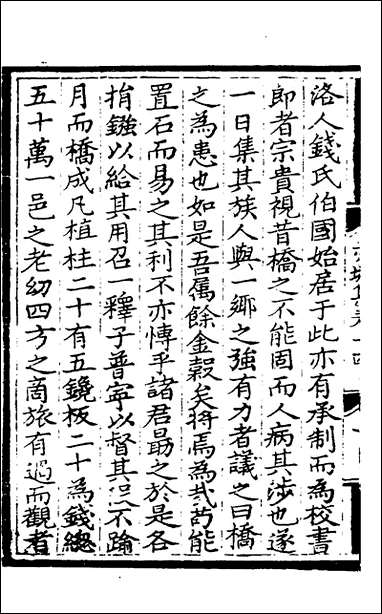 洛人錢氏伯國始居于此亦有承制而為校書
郎者宗貴視昔橋之不能固而人病其涉也遂
一日集其族人與一鄉之強有力者議之曰橋
之為患也如是吾屬餘金穀矣將焉為哉茍能
置石而易之其利不亦博乎諸君勗之於是各
捐鏹以給其用召一釋子普寧以督其役不踰
月而橋成凡植柱二十有五鑱板二十為錢緫
五十萬一邑之老幼四方之商旅有過而觀者